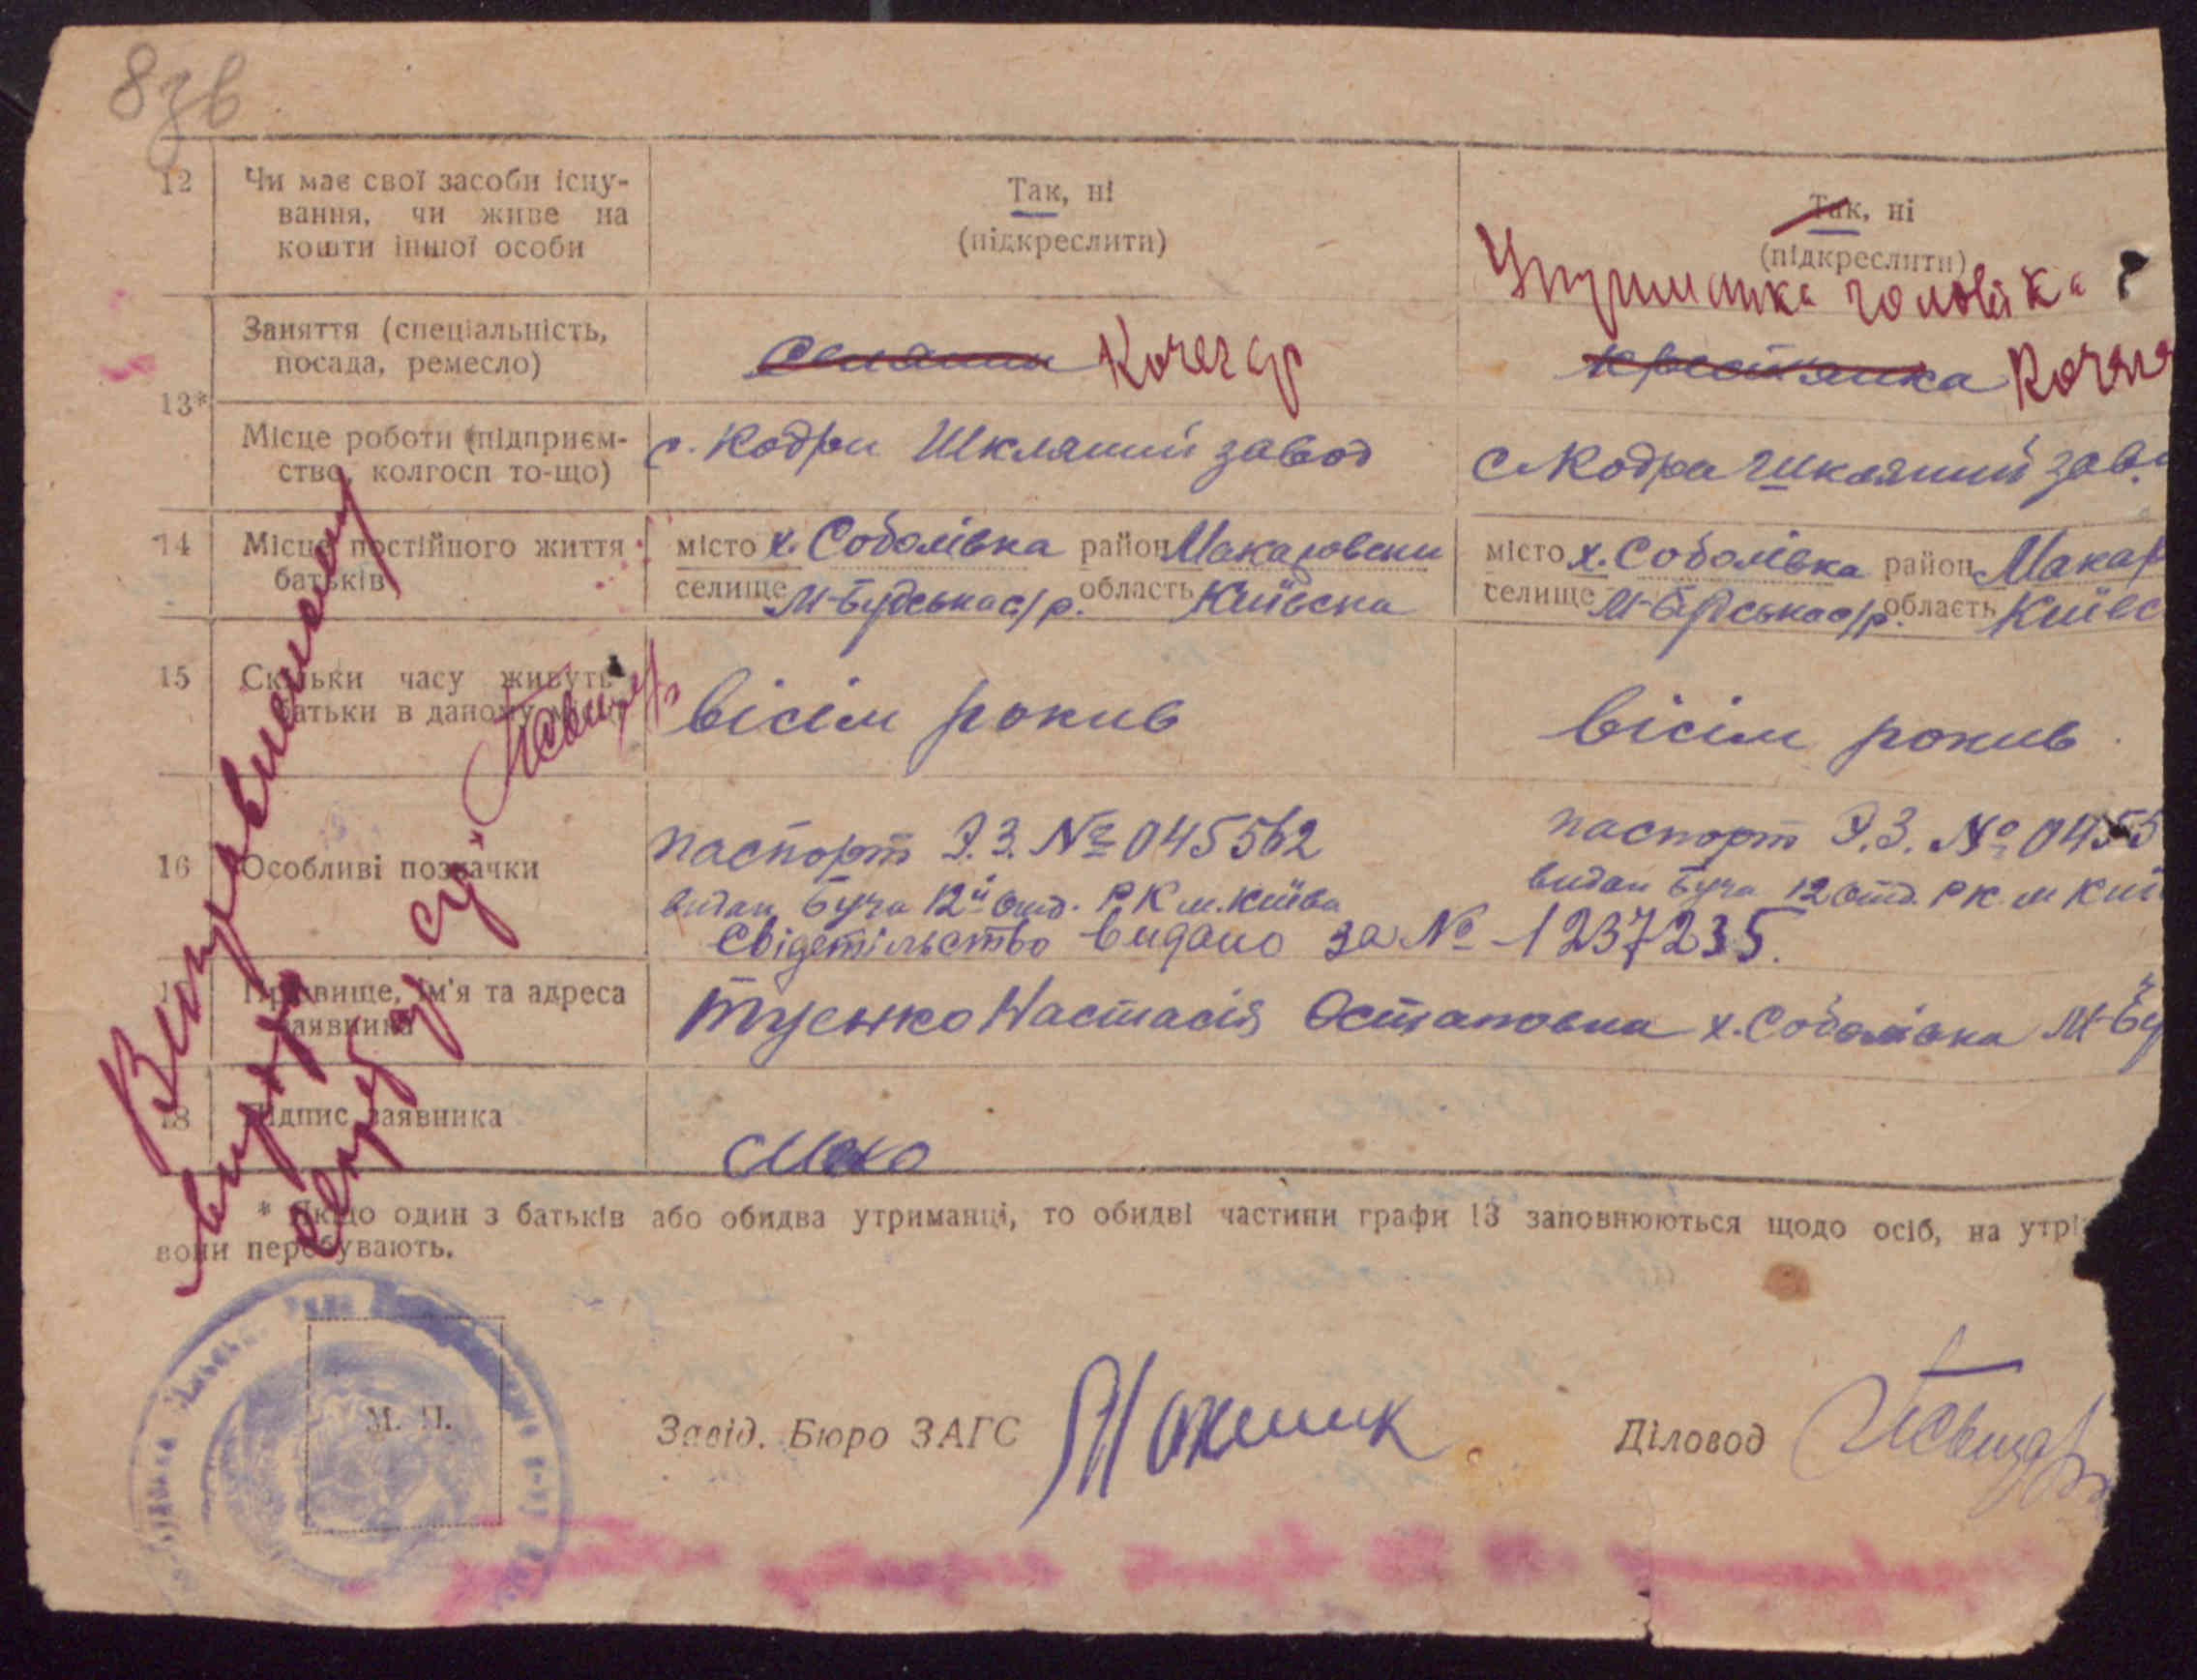 8зв
12 Чи має свої засоби існу-
вання, чи живе на
кошти іншої особи
Так, ні
(підкреслити)
Так, ні
(підкреслити)
Утриманка чоловіка
13*
Заняття (спеціальність,
посада, ремесло)
Селянин Кочегар
крестьянка Кочега
Місце роботи (підприєм-
ство, колгосп то-що)
с. Кодри Шкляний завод
с. Кодра Шкляний зав.
14 Місце постійного життя
батьків
місто х. Соболівка район Макаровски
селище М-Будська с/р. область Київска
місто х. Соболівка район Макар
селище М-Будська с/р. область Київс
15 Скільки часу живуть
батьки в даному місці
вісім рокив
вісім рокив
16 Особливі позначки
паспорт Э.З. № 045562
видан Буча 12й отд. РК м. Київа
паспорт Э.З. № 0455
видан Буча 12 отд. РК м Киї
Свідетільство видано за № 1237235.
17 Прізвище, ім'я та адреса
заявника
Тусенко Настасія Остаповна х. Соболівка М-Бу
18 Підпис заявника
* Якщо один з батьків або обидва утриманці, то обидві частини графи 13 заповнюються щодо осіб, на утрі
вони перебувають.
М. П.
Завід. Бюро ЗАГС
Діловод